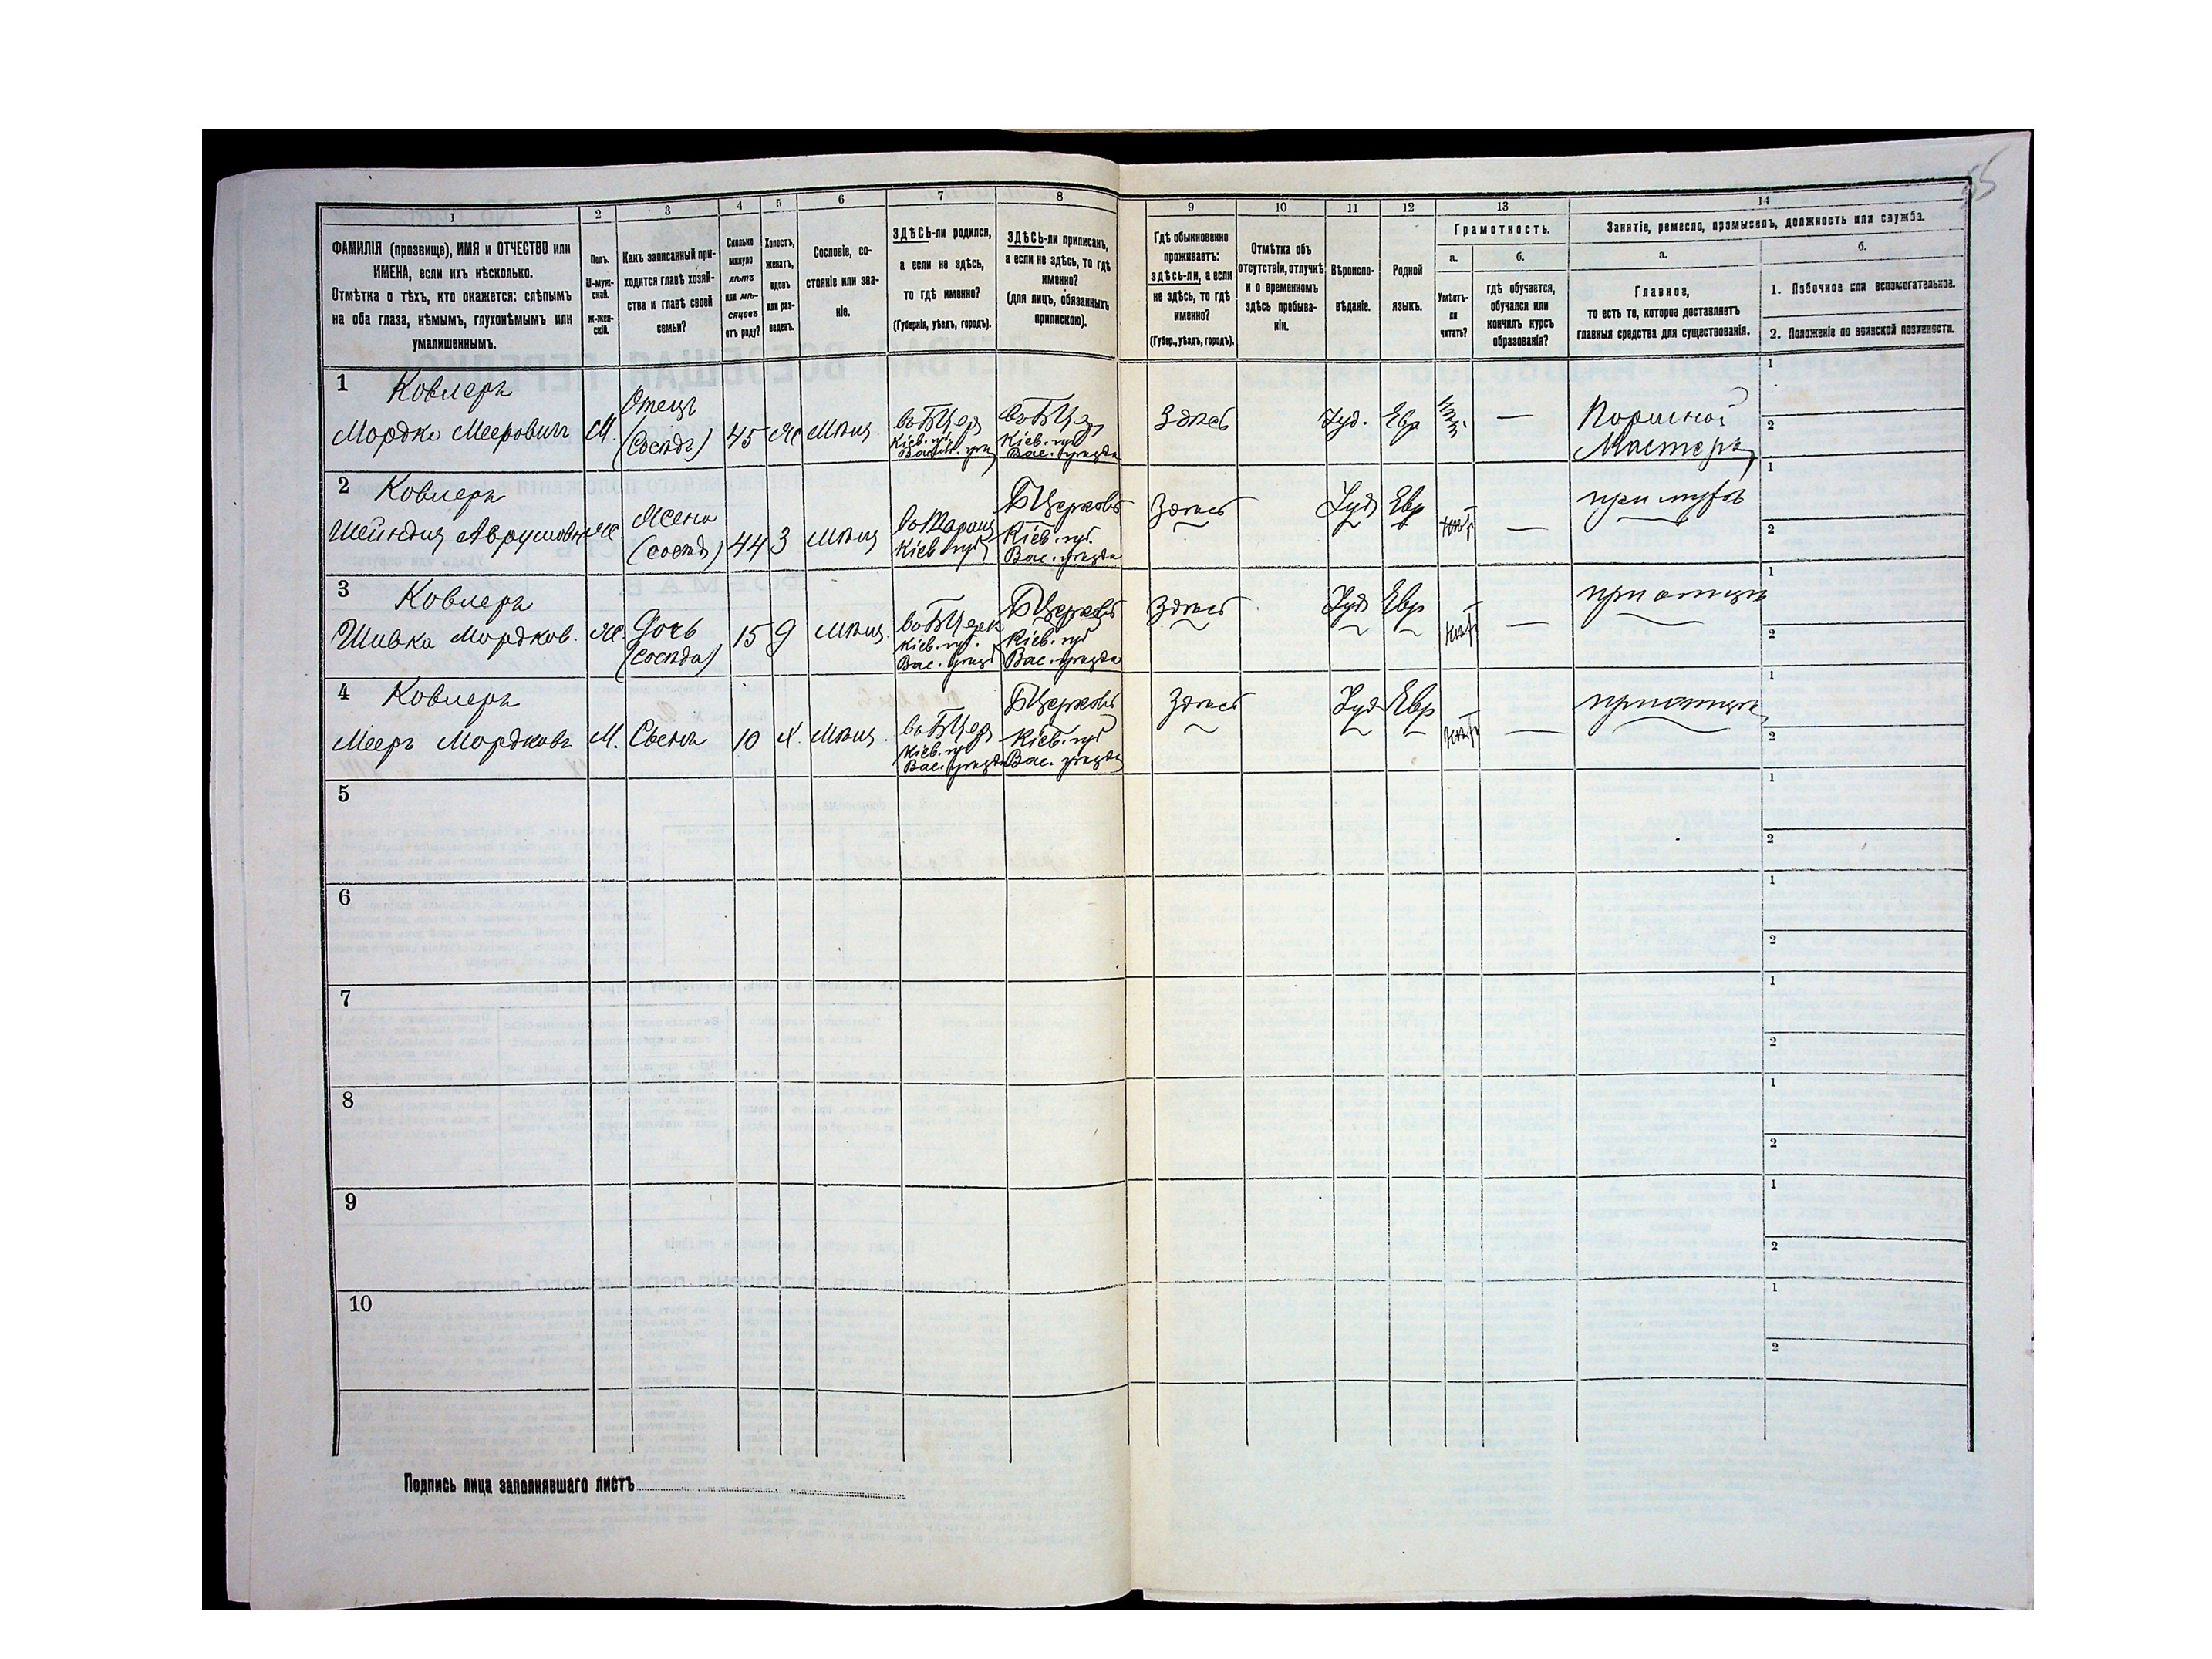 55
1 2 3 4 5 6 7 8 9 10 11 12 13 14
ФАМИЛІЯ (прозвище), ИМЯ и ОТЧЕСТВО или
ИМЕНА, если ихъ нѣсколько.
Отмѣтка о тѣхъ, кто окажется: слѣпымъ
на оба глаза, нѣмымъ, глухонѣмымъ или
умалишеннымъ.
Полъ.
М-муж-
ской.
Ж-жен-
скій.
Какъ записанный при-
ходится главѣ хозяй-
ства и главѣ своей
семьи?
Сколько
минуло
лѣтъ
или мѣ-
сяцевъ
отъ роду?
Холостъ,
женатъ,
вдовъ
или раз-
веденъ.
Сословіе, со-
стояніе или зва-
ніе.
ЗДѢСЬ-ли родился,
а если не здѣсь,
то гдѣ именно?
(Губернія, уѣздъ, городъ).
ЗДѢСЬ-ли приписанъ,
а если не здѣсь, то гдѣ
именно?
(для лицъ, обязанныхъ
припискою).
Гдѣ обыкновенно
проживаетъ:
здѣсь-ли, а если
не здѣсь, то гдѣ
именно?
(Губер., уѣздъ, городъ).
Отмѣтка объ
отсутствіи, отлучкѣ
и о временномъ
здѣсь пребыва-
ніи.
Вѣроиспо-
вѣданіе.
Родной
языкъ.
Грамотность.
а.
Умѣетъ-
ли
читать?
б.
гдѣ обучается,
обучался или
кончилъ курсъ
образованія?
Занятіе, ремесло, промыселъ, должность или служба.
а.
Главное,
то есть то, которое доставляетъ
главныя средства для существованія.
б.
1. Побочное или вспомогательное.
2. Положеніе по воинской повинности.
1 Ковлеръ
Мордко Мееровичъ М. Отецъ (сосѣдъ) 45 Ж Мѣщ.
въ БЦерк
Кіев. губ.
Вас. уѣзд
въ БЦер
Кіев. губ
Вас. уѣзда
Здѣсь Іуд. Евр —
Мастеръ
1
2
2 Ковлеръ
Шейндля Аврумовн Ж Жена (сосѣд) 44 З Мѣщ
Кіев губ
БЦерковь
Кіев. губ.
Вас. уѣзда
Здѣсь Іуд Евр нѣт — при мужѣ
1
2
3 Ковлеръ
Шивка Мордков. Ж. Дочь (сосѣда) 15 Мѣщ.
въ БЦерк
Кіев. губ.
Вас. уѣзд
БЦерковь
Кіев. губ
Вас. уѣзда
Здѣсь Іуд Евр нѣт — при отцѣ
1
2
4 Ковлеръ
Мееръ Мордковъ М. Сынъ 10 Х. Мѣщ.
въ БЦер
Кіев. губ
Вас. уѣзда
БЦерковь
Кіев. губ
Вас. уѣзда
Здѣсь Іуд Евр нѣт — при отцѣ
1
2
5
1
2
6
1
2
7
1
2
8
1
2
9
1
2
10
1
2
Подпись лица заполнявшаго листъ